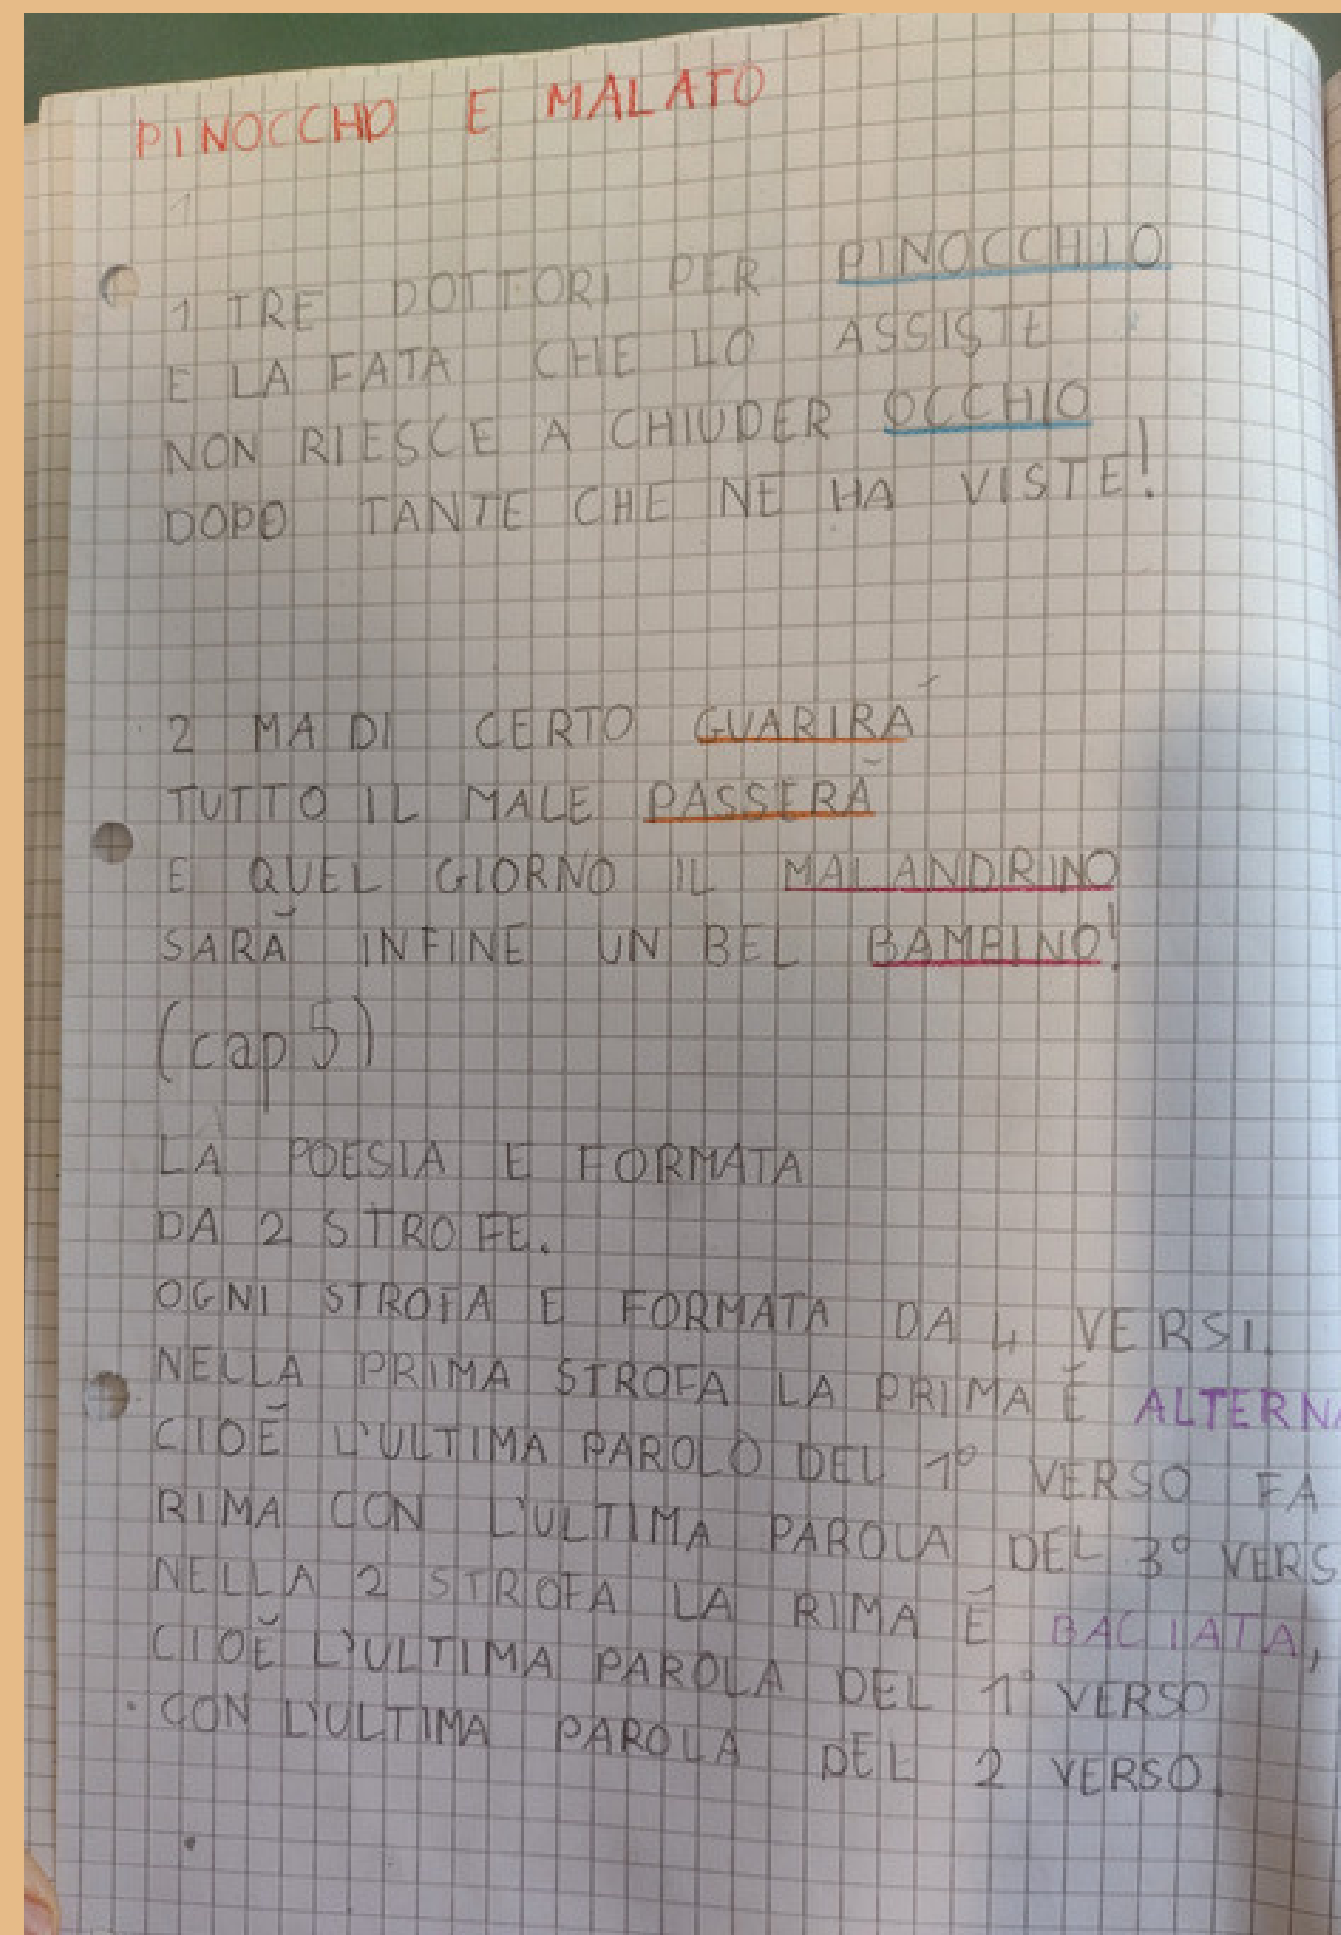 PINOCCHIO E MALATO
1
1 TRE DOTTORI PER PINOCCHIO
E LA FATA CHE LO ASSISTE
NON RIESCE A CHIUDER OCCHIO
DOPO TANTE CHE NE HA VISTE!
2 MA DI CERTO GUARIRÁ
TUTTO IL MALE PASSERÁ
E QUEL GIORNO IL MALANDRINO
SARÁ INFINE UN BEL BAMBINO!
(cap 5)
LA POESIA E FORMATA
DA 2 STROFE.
OGNI STROFA E FORMATA DA 4 VERSI.
NELLA PRIMA STROFA LA PRIMA É ALTERNA
CIOÉ L'ULTIMA PAROLO DEL 1° VERSO FA
RIMA CON L'ULTIMA PAROLA DEL 3° VERS
NELLA 2 STROFA LA RIMA É BACIATA,
CIOÉ L'ULTIMA PAROLA DEL 1° VERSO
CON L'ULTIMA PAROLA DEL 2 VERSO.